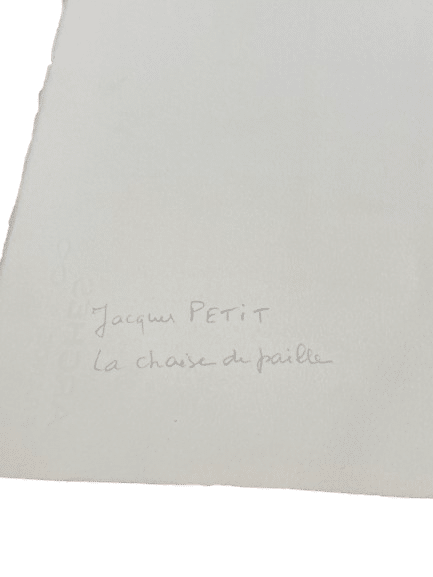 Jacques PETIT
La chaise de paille